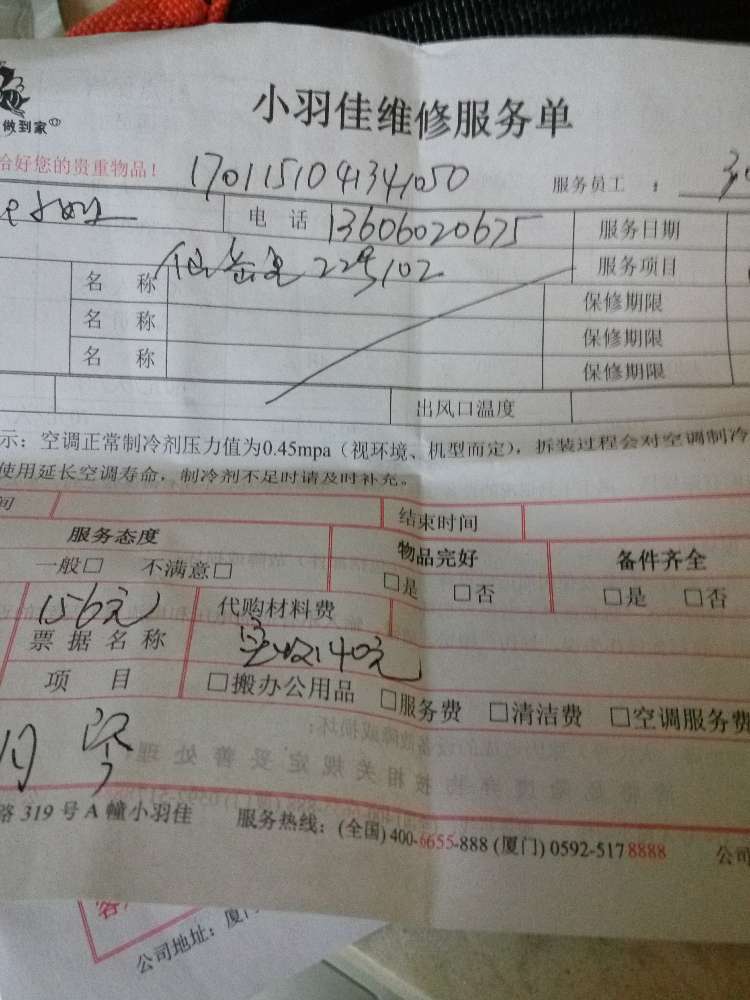 小羽佳维修服务单
做到家
恰好您的贵重物品！ 1701151041341050 服务员工：
电 话 13606020675 服务日期
名 称 22号102 服务项目
保修期限
名 称 保修期限
名 称 保修期限
出风口温度
示：空调正常制冷剂压力值为0.45mpa（视环境、机型而定），拆装过程会对空调制冷
使用延长空调寿命，制冷剂不足时请及时补充。
间 结束时间
服务态度 物品完好 备件齐全
一般□ 不满意□ □是 □否 □是 □否
156元 代购材料费
票据名称 实收140元
项 目 □搬办公用品 □服务费 □清洁费 □空调服务费
月
路 319 号 A 幢小羽佳 服务热线：(全国) 400-6655-888 (厦门) 0592-5178888 公司
公司地址：厦门